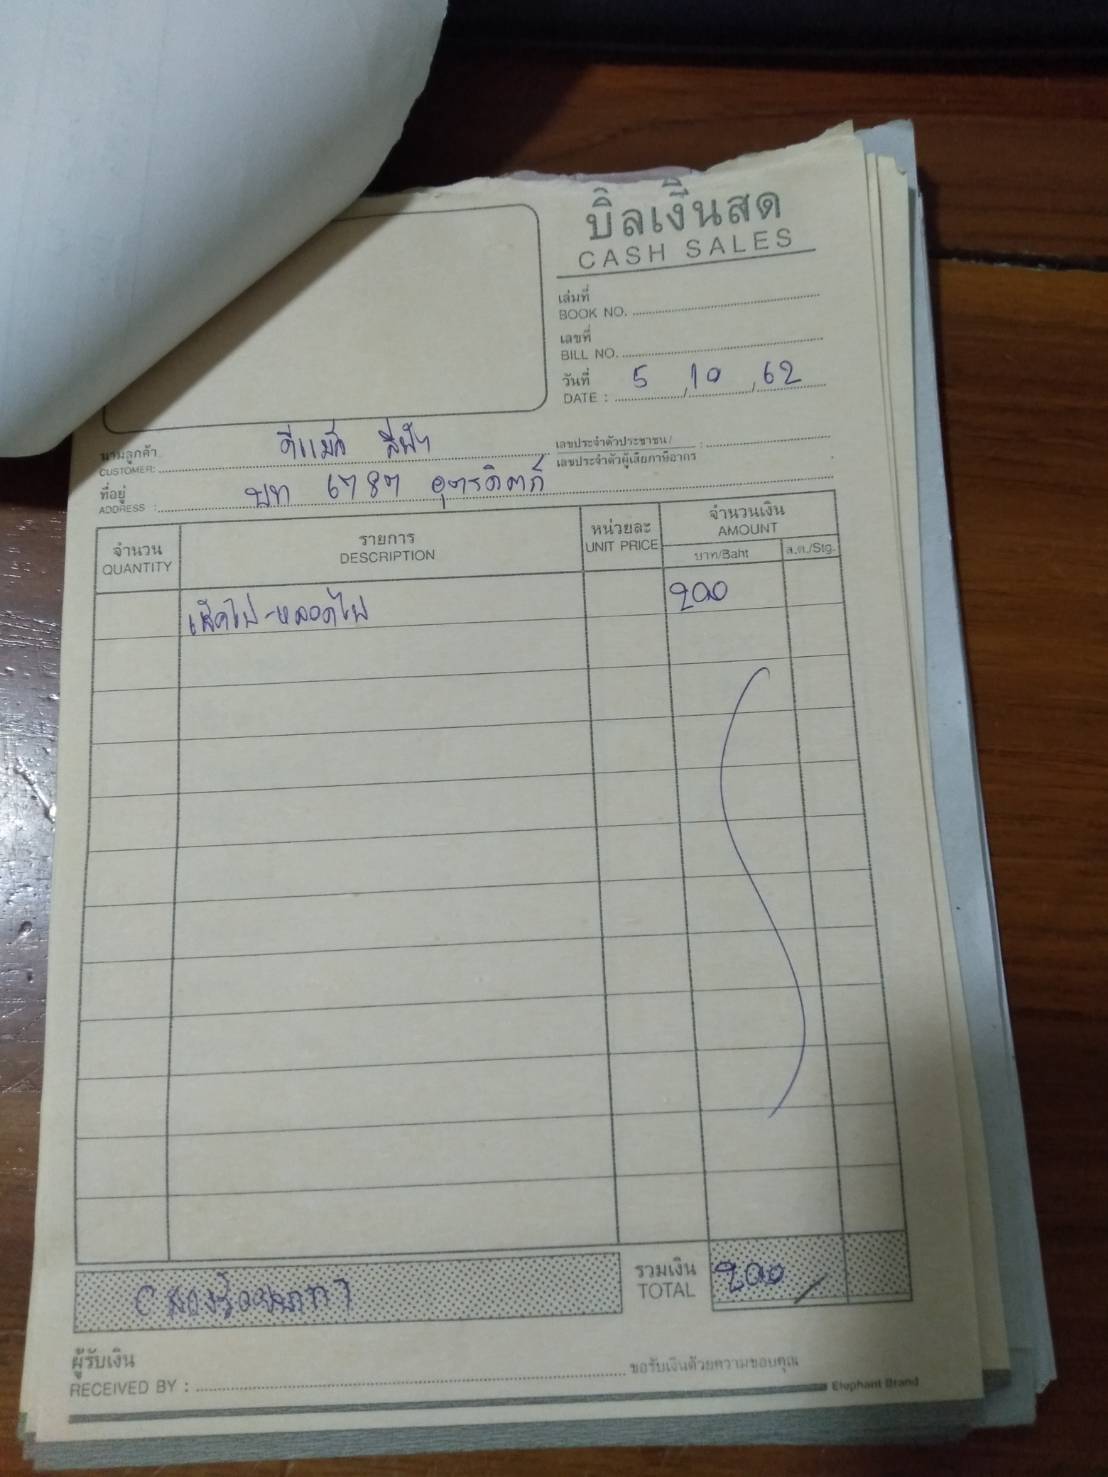 บิลเงินสด
CASH SALES
เล่มที่
BOOK NO.
เลขที่
BILL NO.
วันที่ 5 / 10 / 62
DATE :
นามลูกค้า ดีแม็ค สีฟ้า
CUSTOMER:
เลขประจำตัวประชาชน/ :
เลขประจำตัวผู้เสียภาษีอากร
ที่อยู่ บท 6787 อุตรดิตถ์
ADDRESS :
จำนวน
QUANTITY
รายการ
DESCRIPTION
หน่วยละ
UNIT PRICE
จำนวนเงิน
AMOUNT
บาท/Baht
ส.ต./Stg.
เช็คไฟ-หลอดไฟ 200
(สองร้อยบาท)
รวมเงิน
TOTAL 200/
ผู้รับเงิน
RECEIVED BY :
ขอรับเงินด้วยความขอบคุณ
Elephant Brand